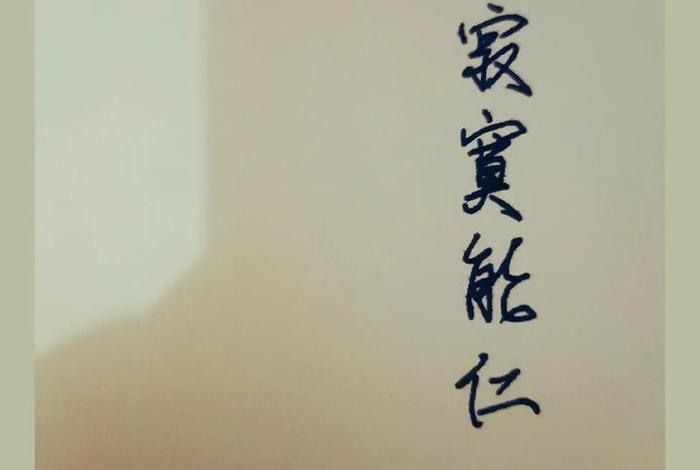 寂寞能仁